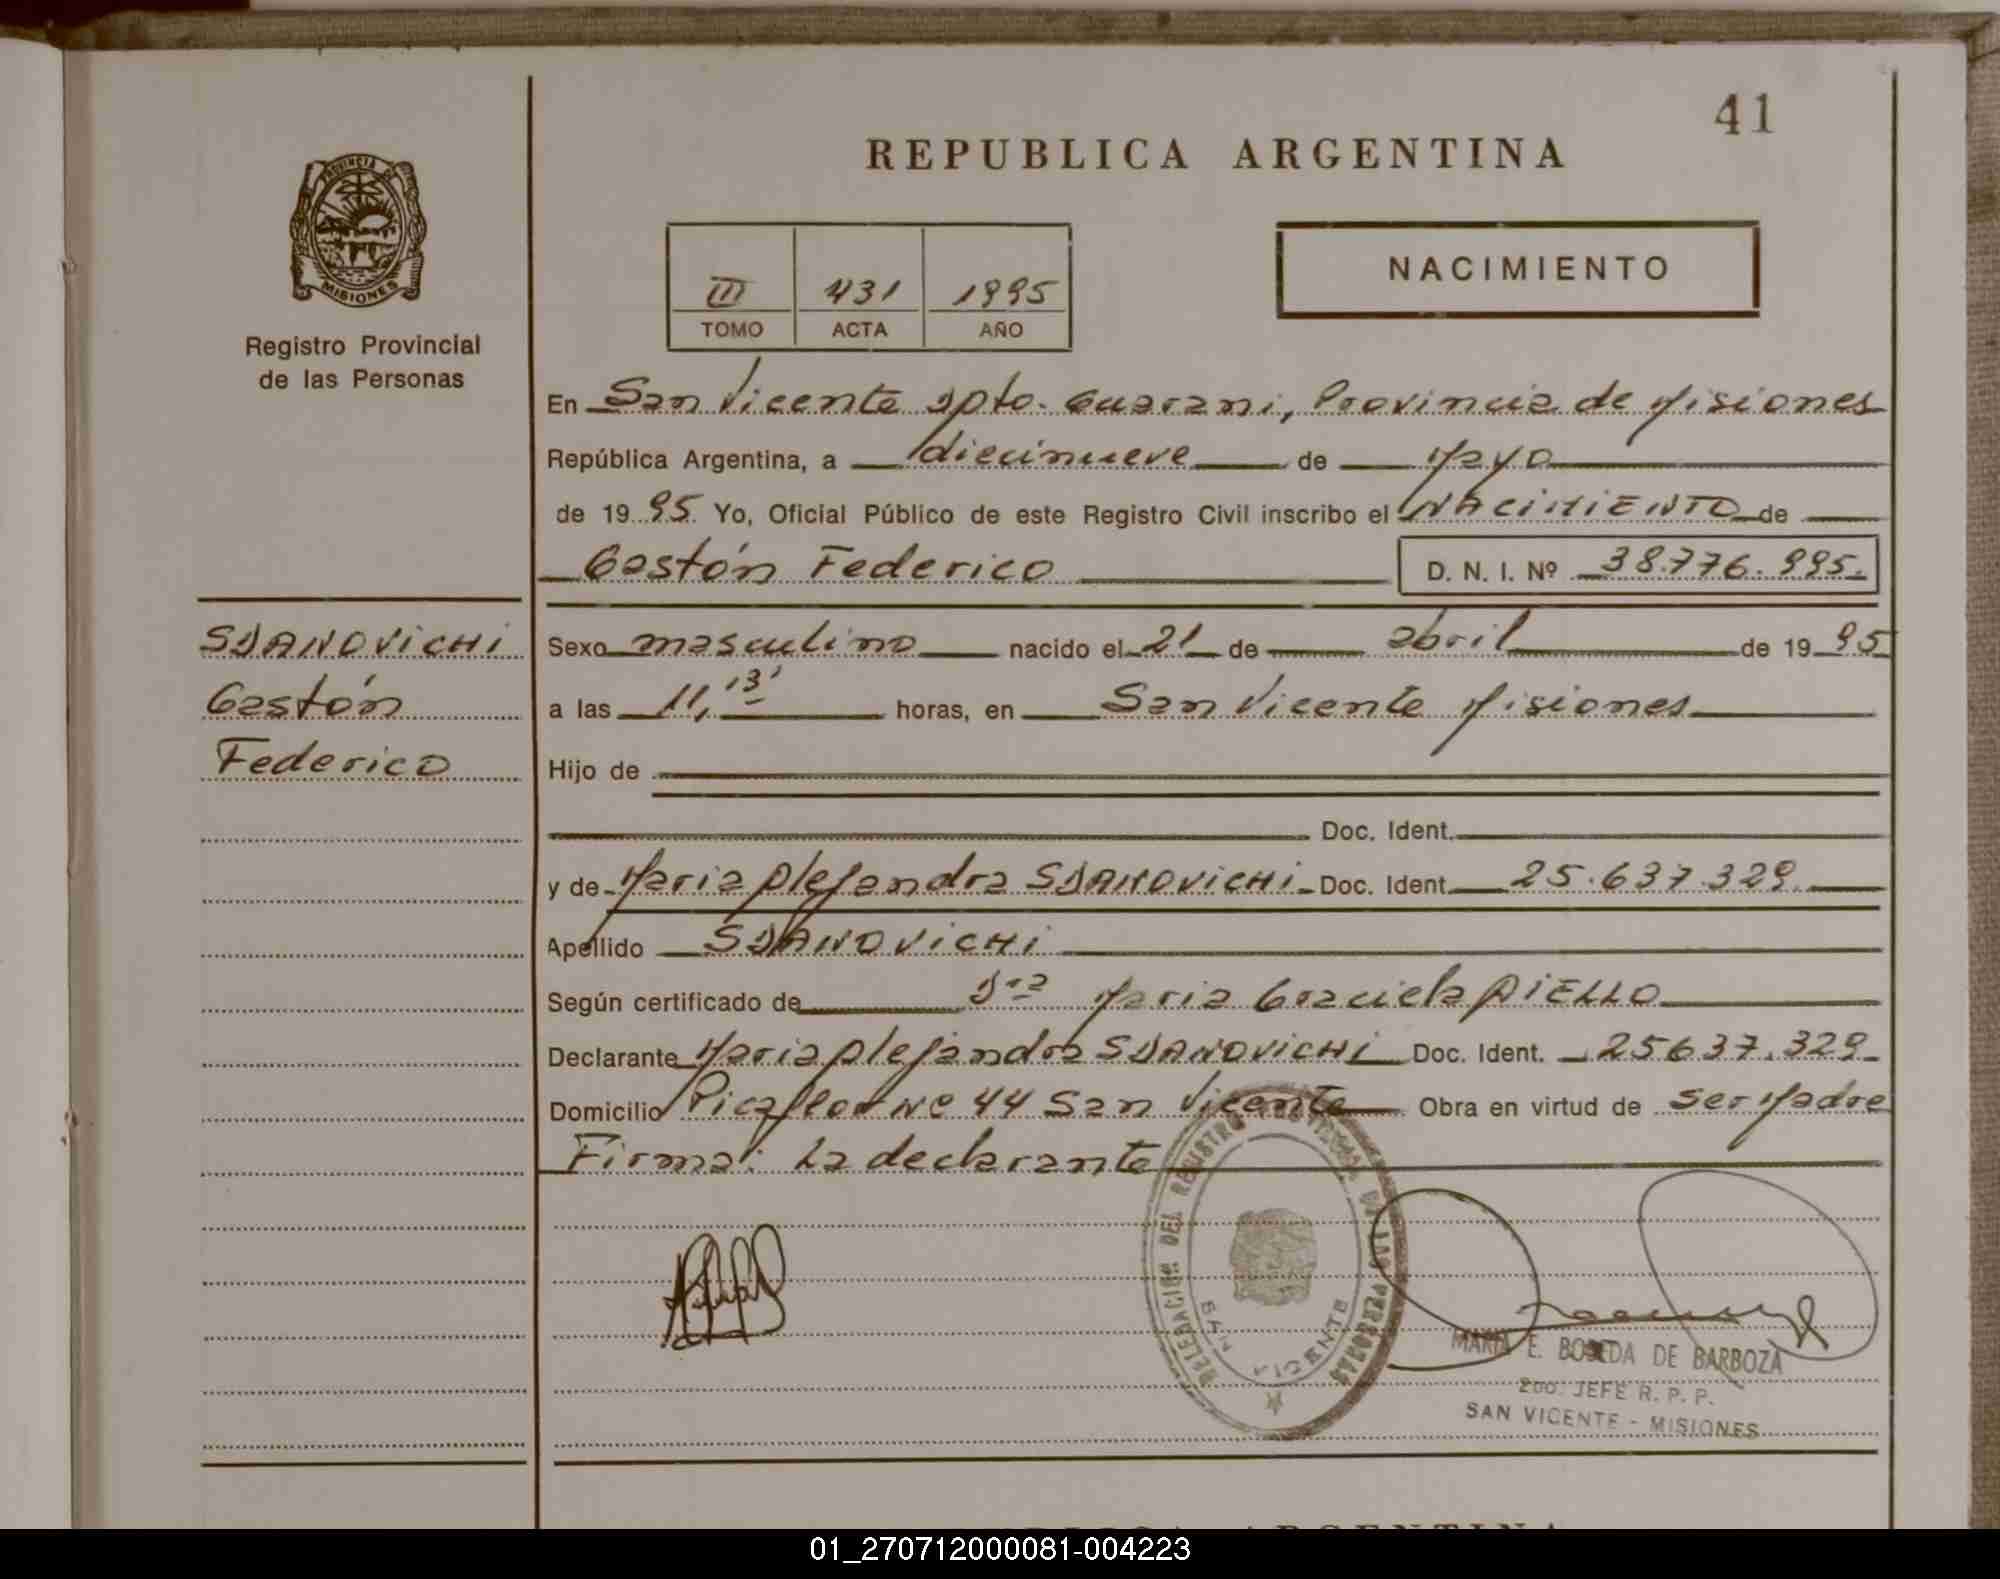 41
REPUBLICA ARGENTINA
PROVINCIA DE
MISIONES
Registro Provincial
de las Personas
III 431 1995
TOMO ACTA AÑO
NACIMIENTO
En San Vicente Dpto. Guarani, Provincia de Misiones
República Argentina, a diecinueve de Mayo
de 1995 Yo, Oficial Público de este Registro Civil inscribo el NACIMIENTO de
Gastón Federico D. N. I. Nº 38.776.995.
SDANOVICHI
Gastón
Federico
Sexo masculino nacido el 21 de abril de 1995
a las 11, horas, en San Vicente Misiones
Hijo de
Doc. Ident.
y de Maria Alejandra SDANOVICHI Doc. Ident. 25.637.329
Apellido SDANOVICHI
Según certificado de Dra Maria Graciela AIELLO
Declarante Maria Alejandra SDANOVICHI Doc. Ident. 25637.329
Domicilio Picaflor Nº 44 San Vicente Obra en virtud de ser Madre
Firma: La declarante
DELEGACION DEL REGISTRO PROVINCIAL DE LAS PERSONAS
SAN VICENTE
MARIA E. DE BARBOZA
2do. JEFE R. P. P.
SAN VICENTE - MISIONES
ARGENTINA
01_270712000081-004223